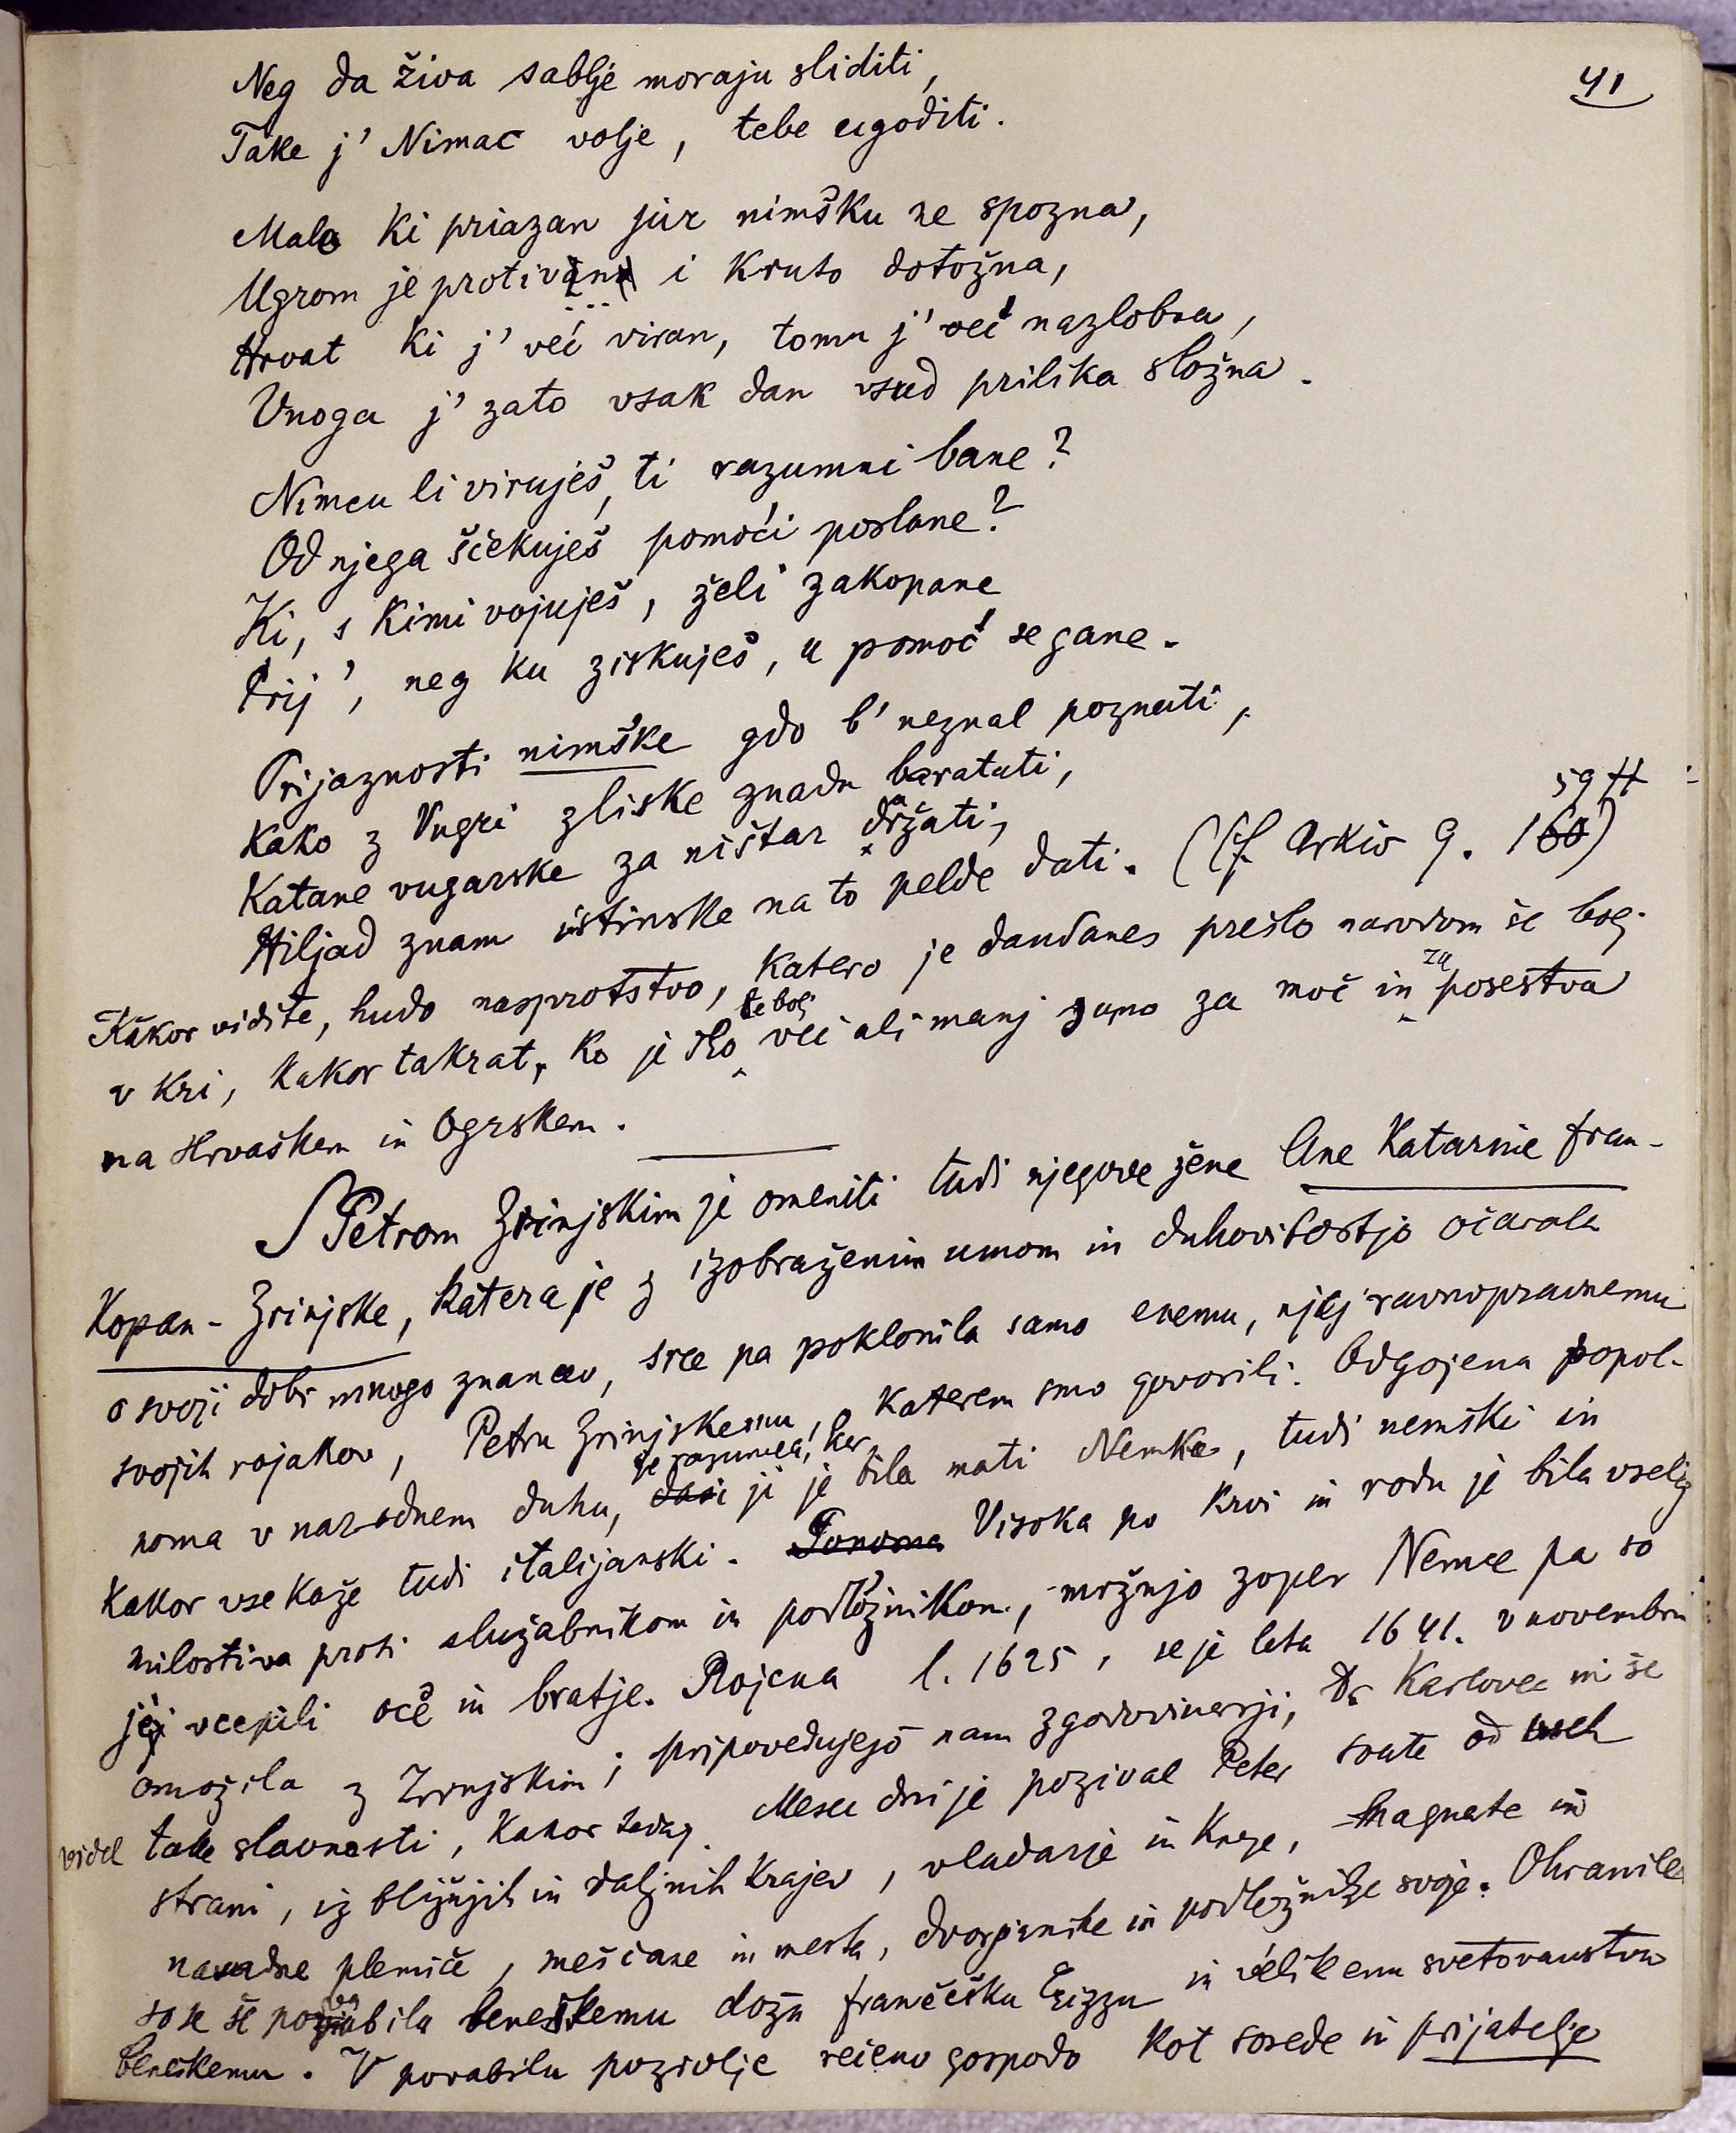 41
Neg da živa sablje moraju sliditi,
Take j' Nimac volje, tebe ugoditi.
Malo ki priazan jur nimšku ne spozna,
Ugrom je protivan i kruto dotožna,
Hrvat ki j' već viran, tomu j' već nazlobna,
Vnoga j' zato vsak dan vsud prilika složna.
Nimcu li viruješ, ti razumni bane?
Od njega ščekuješ pomoći poslane?
Ki, s kimi vojuješ, želi zakopane
Prij', neg ku ziskuješ, u pomoć se gane.
Prijaznosti nimške gdo b' neznal poznati,
Kako z Vugri zliske znadu baratati,
Katane vugarske za ništar držati,
Hiljad znam istinske na to pelde dati. (Cf. Arkiv 9. 159 ff)
Kakor vidite, hudo nasprotstvo, katero je dandanes prešlo narodom še bolj
v kri, kakor takrat, ko je šlo še bolj več ali manj samo za moč in za posestva
na Hrvaškem in Ogrskem.
S Petrom Zrinjskim je omeniti tudi njegove žene Ane Katarine Fran-
kopan-Zrinjske, katera je z izobraženim umom in duhovitostjo očarala
o svoji dobi mnogo znancev, srce pa poklonila samo enemu, njej ravnopravnemu
svojih rojakov, Petru Zrinjskemu, o katerem smo govorili. Odgojena popol-
noma v narodnem duhu, je razumela, ker ji je bila mati Nemka, tudi nemški in
kakor vse kaže tudi italijanski. Ponosna Visoka po krvi in rodu je bila vselej
milostiva proti služabnikom in podložnikom, mržnjo zoper Nemce pa so
jej vcepili oče in bratje. Rojena l. 1625, se je leta 1641. v novembru
omožila z Zrinjskim; pripovedujejo nam zgodovinarji, da Karlovec ni še
videl take slavnosti, kakor tedaj. Mesec dni je pozival Peter svate od vseh
strani, iz bližnjih in daljnih krajev, vladarje in kneze, magnate in
navadne plemiče, meščane in mesta, dvorjanike in podložnike svoje. Ohranila
so se še povabila beneškemu dožu Frančešku Erizzu in velikemu svetovanstvu
beneškemu. V povabilu pozivlje rečeno gospodo kot sosede in prijatelje